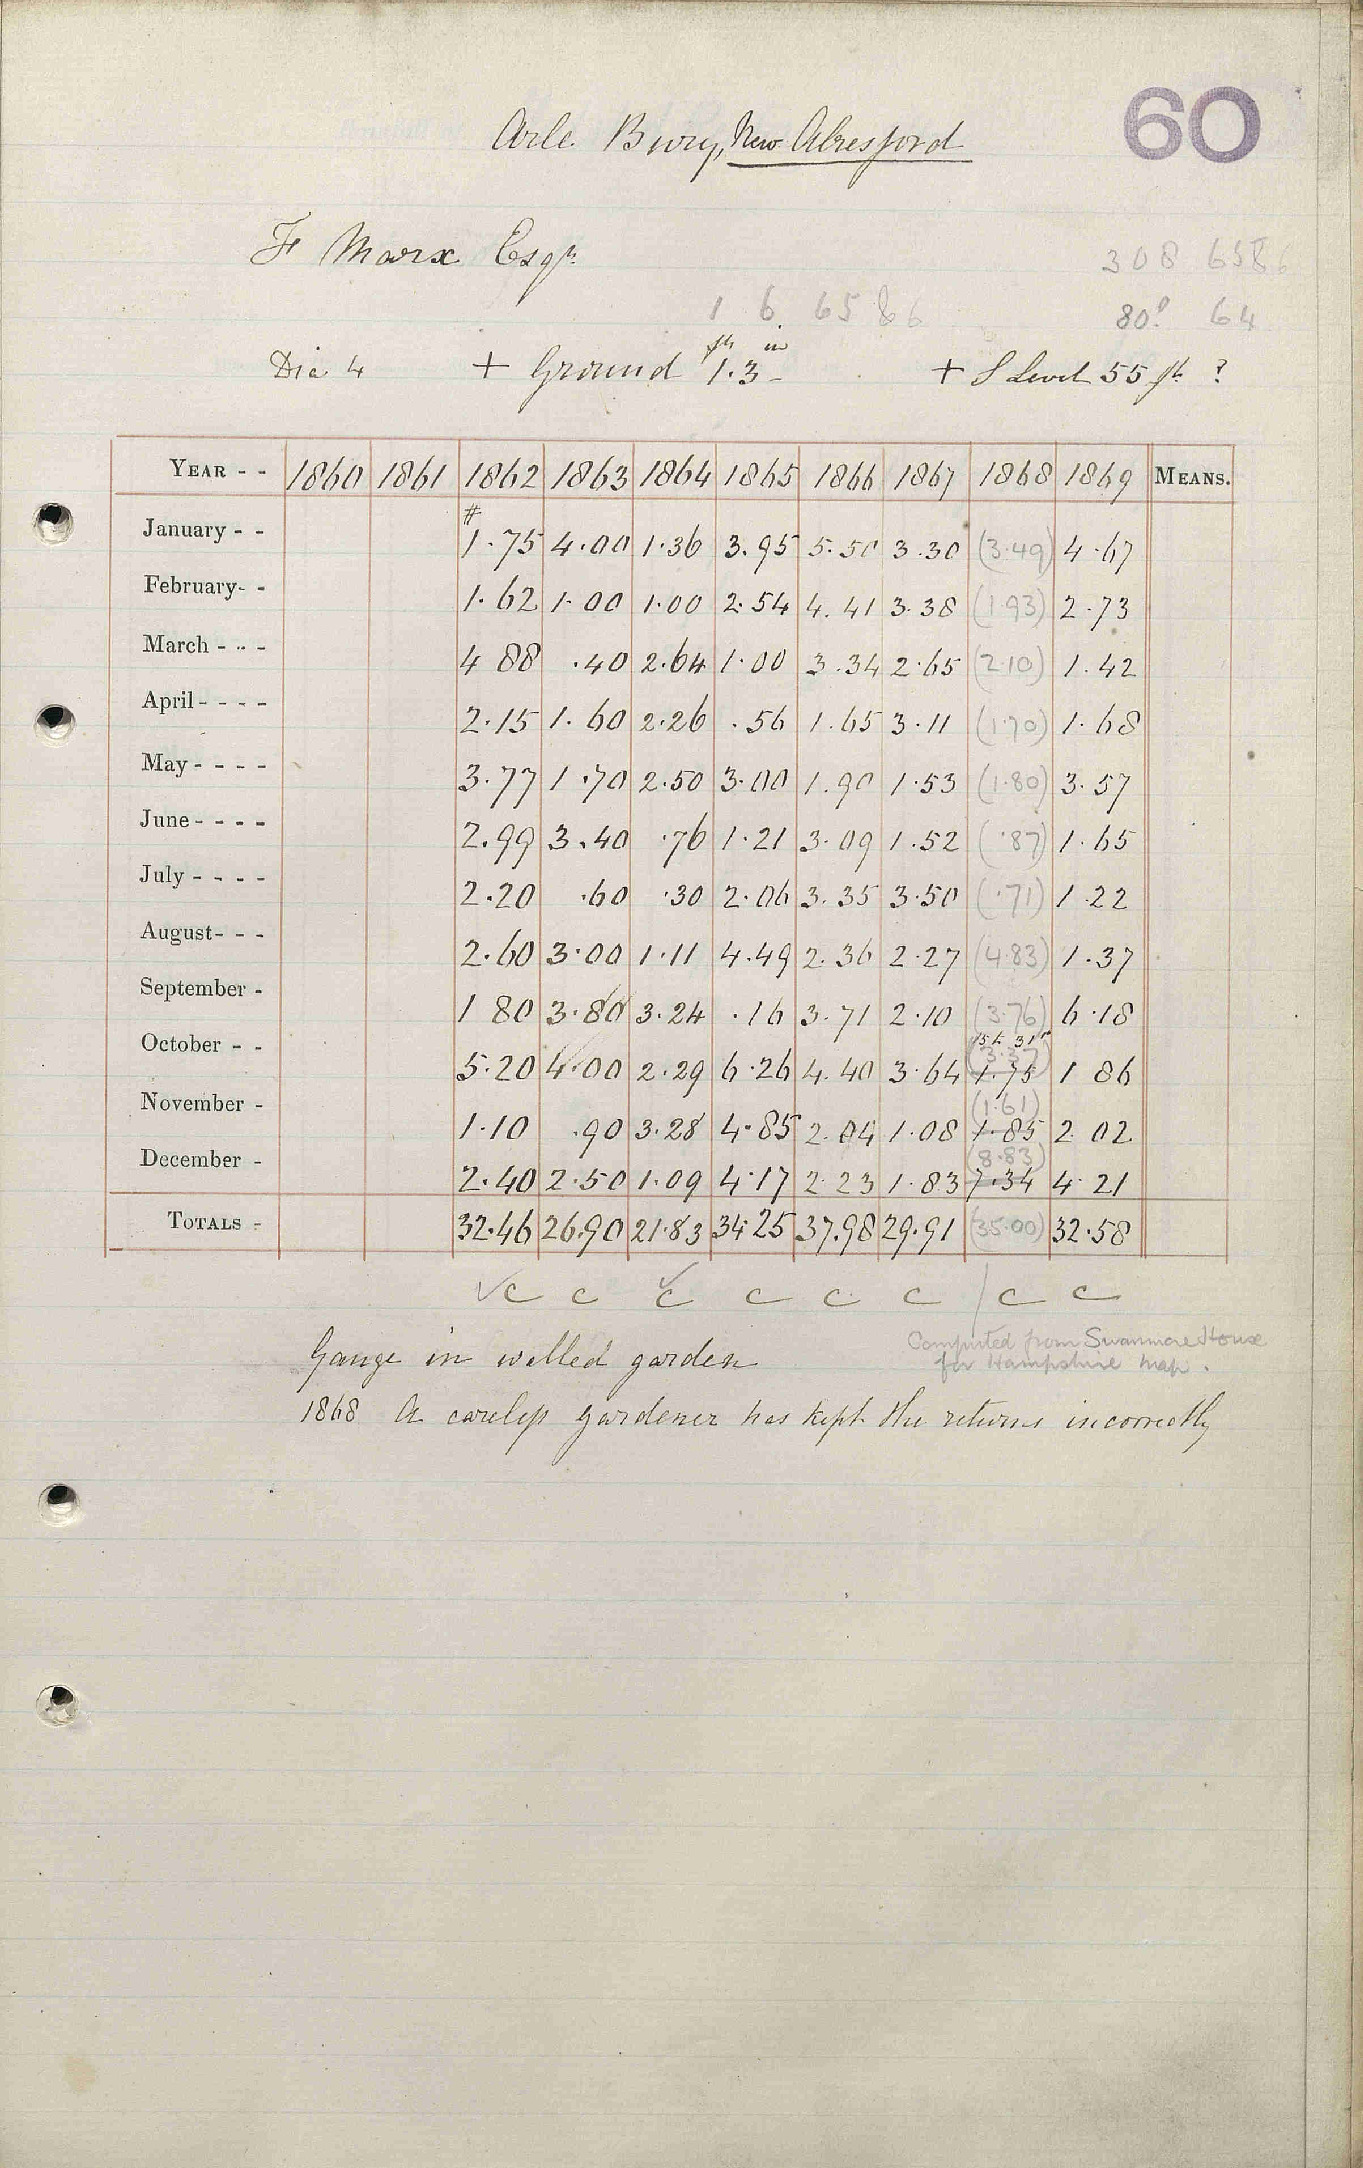 60
Arle Bury, New Alresford
F Marx Esqr
308 6586
1 6 6586
80° 64
Dia 4 + Ground 1.3 ft in + S Level 55 ft ?
YEAR - - 1860 1861 1862 1863 1864 1865 1866 1867 1868 1869 MEANS.
#
January - - 1.75 4.00 1.36 3.95 5.50 3.30 (3.49) 4.67
February- - 1.62 1.00 1.00 2.54 4.41 3.38 (1.93) 2.73
March - - - 4 88 .40 2.64 1.00 3.34 2.65 (2.10) 1.42
April - - - - 2.15 1.60 2.26 .56 1.65 3.11 (1.70) 1.68
May - - - - 3.77 1.70 2.50 3.00 1.90 1.53 (1.80) 3.57
June - - - - 2.99 3.40 .76 1.21 3.09 1.52 (.87) 1.65
July - - - - 2.20 .60 .30 2.06 3.35 3.50 (.71) 1.22
August- - - 2.60 3.00 1.11 4.49 2.36 2.27 (4.83) 1.37
September - 1 80 3.80 3.24 .16 3.71 2.10 (3.76) 6.18
15th 31st
(3.37)
October - - 5.20 4.00 2.29 6.26 4.40 3.64 1.75 1 86
(1.61)
November - 1.10 .90 3.28 4.85 2.04 1.08 1.85 2 02
(8.83)
December - 2.40 2.50 1.09 4.17 2 23 1.83 7.34 4.21
TOTALS - 32.46 26.90 21.83 34.25 37.98 29.91 (35.00) 32.58
c c c c c c c c
Computed from Swanmore House
for Hampshire Map.
Gauge in walled garden
1868 A careless gardener has kept the returns incorrectly